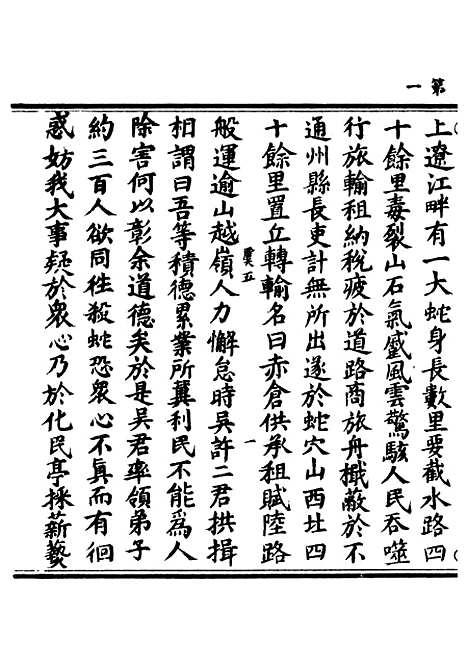 第一
上遼江畔有一大蛇身長數里要截水路四
十餘里毒裂山石氣盛風雲驚駭人民吞噬
行旅輸租納稅疲於道路商旅舟檝蔽於不
通州縣長吏計無所出遂於蛇穴山西北四
十餘里置立轉輸名曰赤倉供承租賦陸路
虞五 一
般運逾山越嶺人力懈怠時吳許二君拱揖
相謂曰吾等積德累業所冀利民不能為人
除害何以彰余道德矣於是吳君率領弟子
約三百人欲同往殺蛇恐衆心不眞而有徊
惑妨我大事疑於衆心乃於化民亭採薪爇